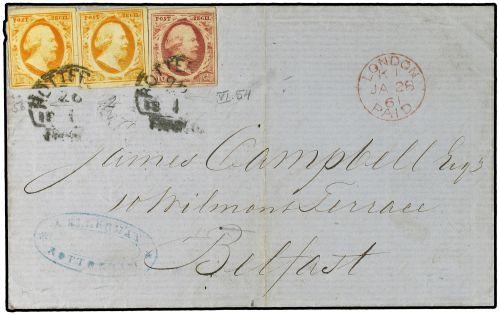 POST ZEGEL POST ZEGEL POST ZEGEL
LONDON
K 1
JA 28
61
PAID
26
VI.54
James Campbell Esqr
10 Wilmont Terrace
Belfast
ROTTERDAM